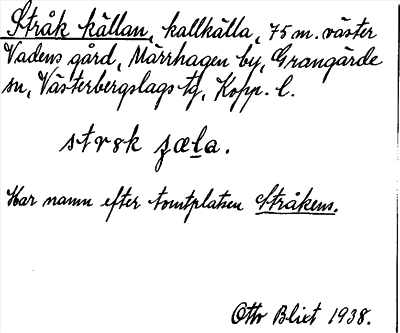 Stråk källan, kallkälla, 75 m. väster
Vadens gård, Märrhagen by, Grangärde
sn, Västerbergslags tg, Kopp. l.
strɞk ʂæla.
Har namn efter tomtplatsen Stråkens.
Otto Blixt 1938.